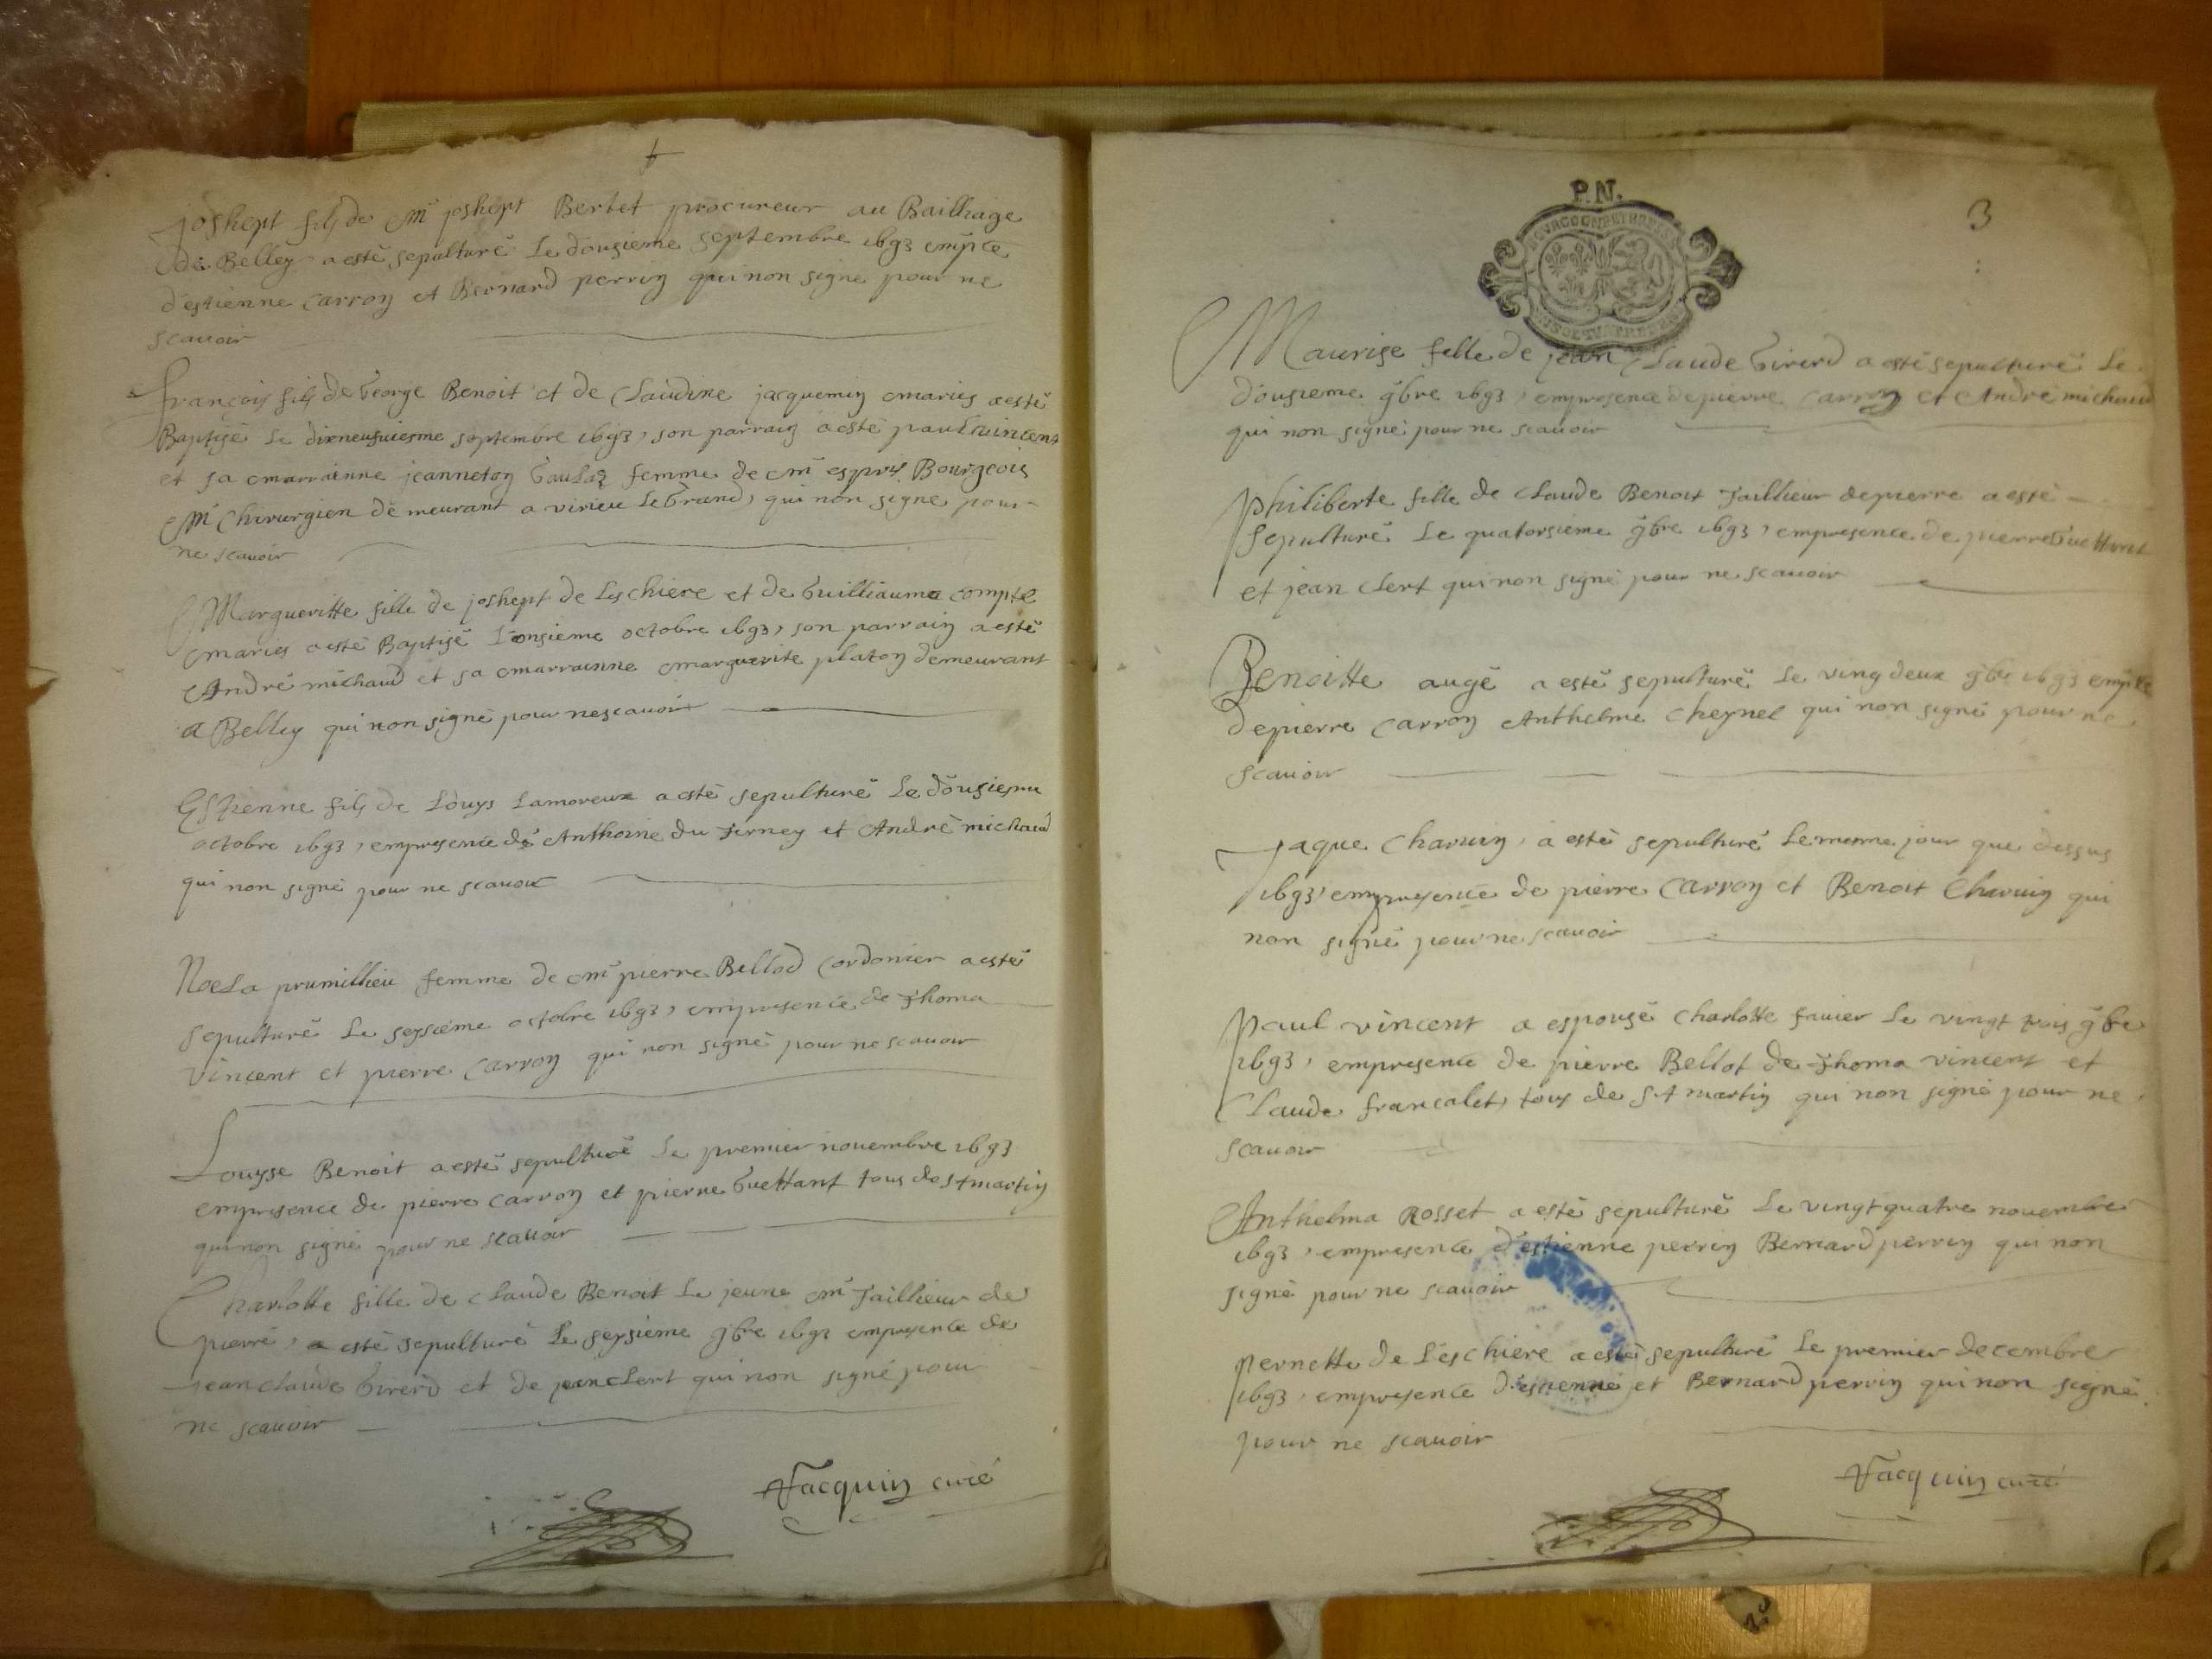 joshept fils de Mr joshept Bertet procureur au Bailliage
de Belley a esté sepulturé le dousieme septembre 1693 empce
d'estienne Carron et Bernard perrin qui non signé pour ne
scavoir
françois fils de George Benoit et de Claudine jacquemin maries a esté
Baptisé le dixneufuiesme septembre 1693, son parrain a esté paul vincent
et sa marrainne jeanneton femme de mr esprit Bourgeois
Mr Chirurgien demeurant a virieu le Grand, qui non signé pour
ne scavoir
Margueritte fille de joshept de Leschiere et de Guilliauma Compte
maries a esté Baptisé l'onsieme octobre 1693, son parrain a esté
André michaud et sa marrainne marguerite platon demeurant
a Belley qui non signé pour ne scavoir
Estienne fils de Louys Lamoreux a esté sepulturé le dousieme
octobre 1693, empresence de Anthoine du Ferney et André michaud
qui non signé pour ne scavoir
Noela prumillieu femme de mr pierre Bellod Cordonier a esté
sepulturé le seysieme octobre 1693, empresence de Thoma
vincent et pierre Carron qui non signé pour ne scavoir
Louyse Benoit a esté sepulturé le premier novembre 1693
empresence de pierre Carron et pierre Guettant tous de st martin
qui non signé pour ne scavoir
Charlotte fille de Claude Benoit le jeune mr Taillieur de
pierre, a esté sepulturé le seysieme 9bre 1693 empresence de
jean Claude Girerd et de jean Clert qui non signé pour
ne scavoir
Jacquin curé
P.N.
3
Maurise fille de jean Claude Girerd a esté sepulturé le
dousieme 9bre 1693, empresence de pierre Carron et André michaud
qui non signé pour ne scavoir
philiberte fille de Claude Benoit Taillieur de pierre a esté
sepulturé le quatorsieme 9bre 1693, empresence de pierre Guettant
et jean Clert qui non signé pour ne scavoir
Benoitte augé a esté sepulturé le vingdeux 9bre 1693 empce
de pierre Carron Anthelme Cheynel qui non signé pour ne
scavoir
Jaque Charvin, a esté sepulturé le mesme jour que dessus
1693, empresence de pierre Carron et Benoit Charvin qui
non signé pour ne scavoir
Paul vincent a espousé Charlotte favier le vingt trois 9bre
1693, empresence de pierre Bellot de Thoma vincent et
Claude francalet, tous de St martin qui non signé pour ne
scavoir
Anthelma Rosset a esté sepulturé le vingtquatre novembre
1693, empresence d'estienne perrin Bernard perrin qui non
signé pour ne scavoir
pernette de Leschiere a esté sepulturé le premier decembre
1693, empresence d'estienne et Bernard perrin qui non signé
pour ne scavoir
Jacquin curé